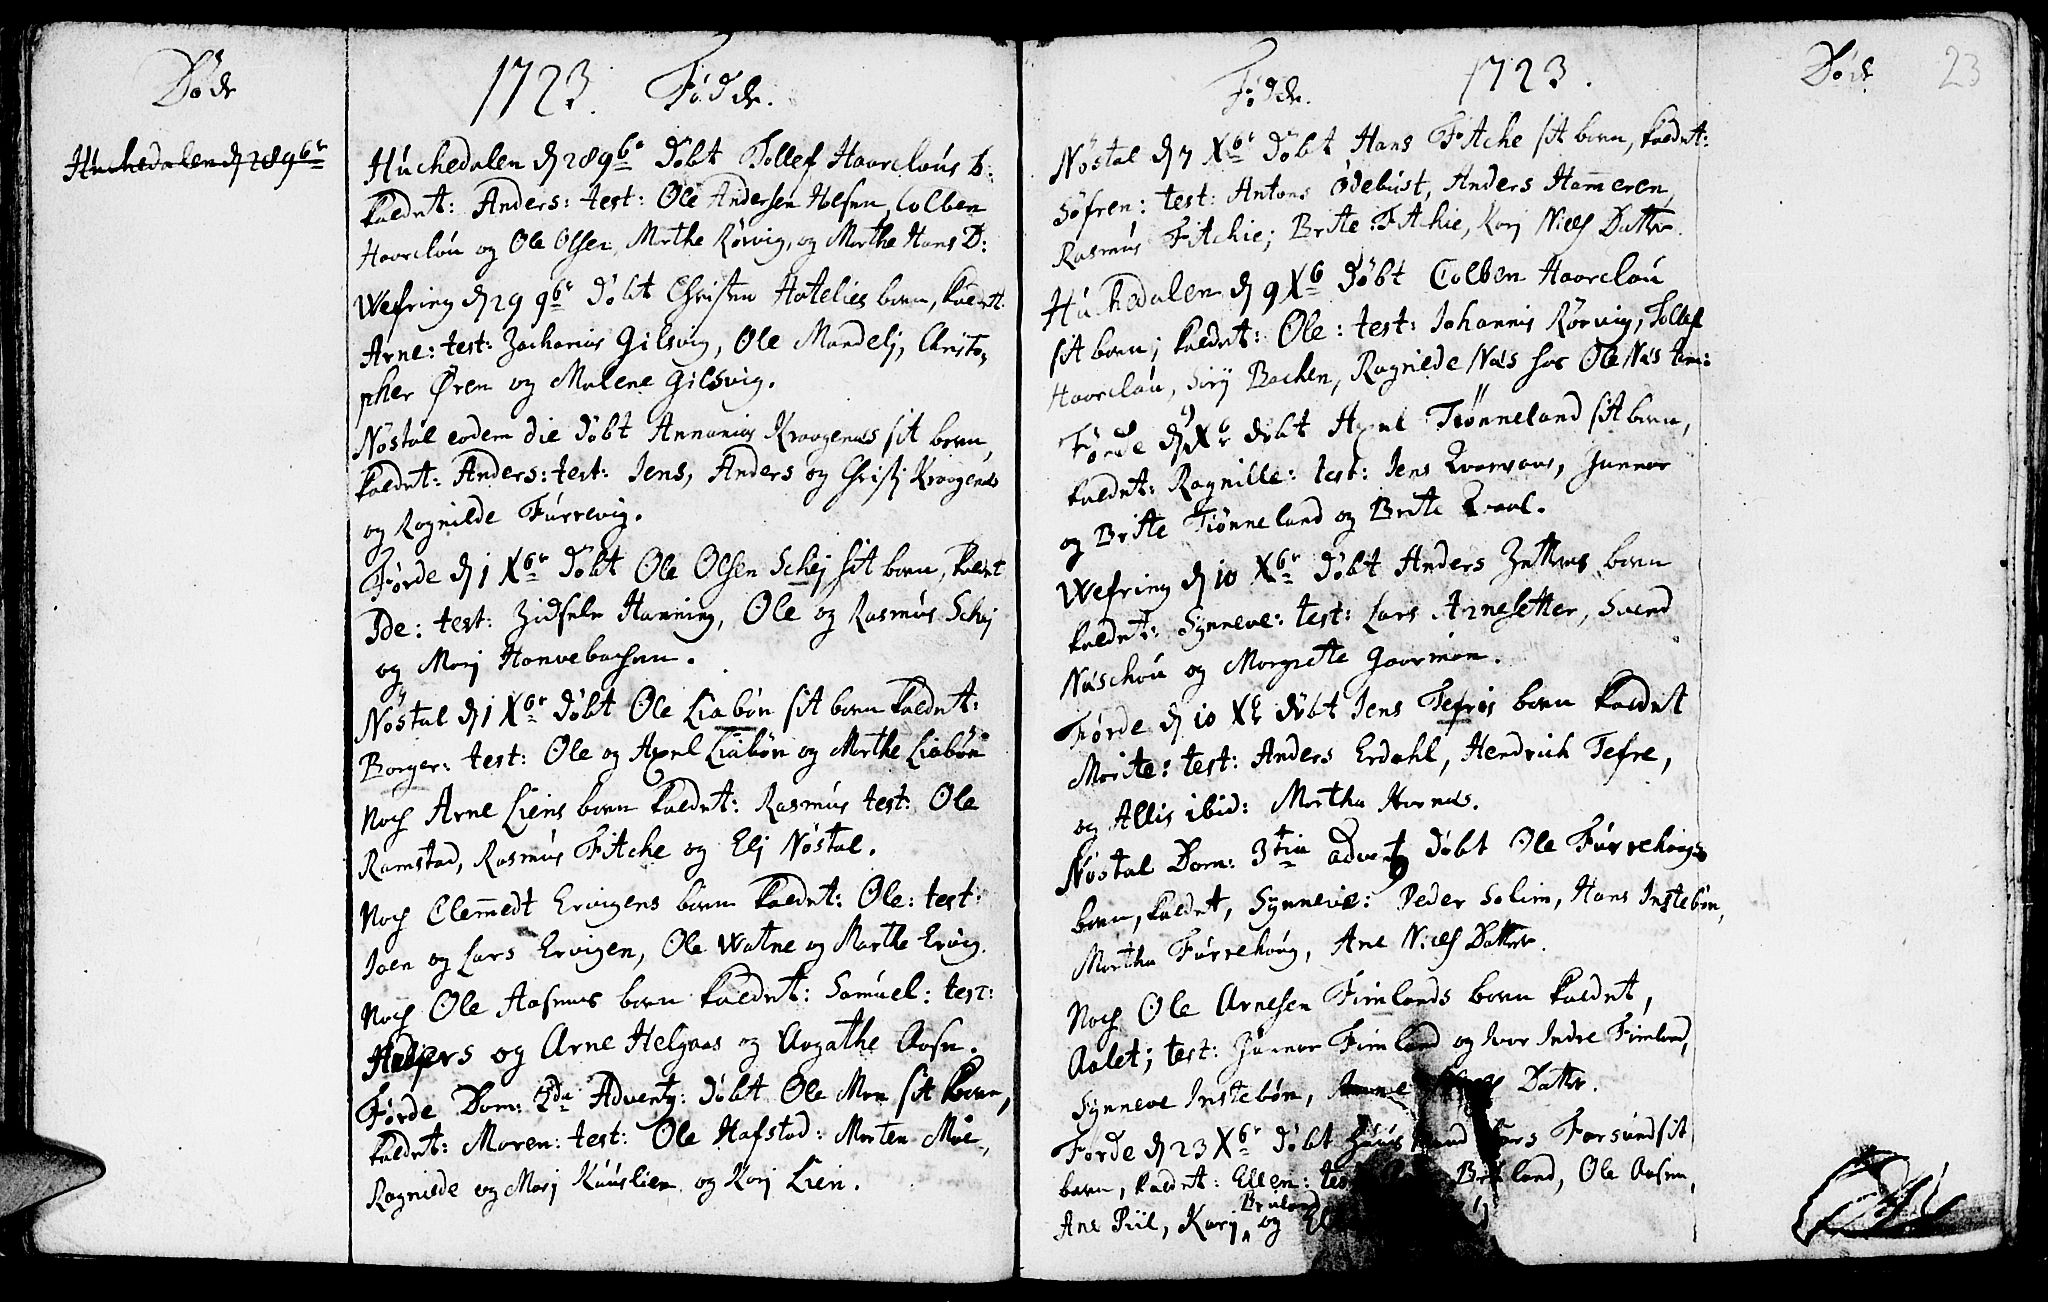 Døde
Huchedalen d 28 9br
1723. Fødde.
Huchedalen d 28 9br Døbt Tollef Haarclous b:
kaldet: Anders: test: Ole Andersen Holsen, Colben
Haarclou og Ole Olsen, Merthe Rørvig, og Merthe Hans D:
Wefring d 29 9br Døbt Christen Hatelies barn, kaldet
Arne: test: Zacharias Gilsvig, Ole Mandelj, Christo,
pher Øren og Malene Gilsvig.
Nøstal eodem die Døbt Annanias Kraagenæs sit barn,
kaldet: Anders: test: Jens, Anders og Christj Kraagenæs
og Ragnilde Furrevig.
Førde d 1 Xbr Døbt Ole Olsen Schej sit barn, kaldet
Ide: test: Zidsele Hanning, Ole og Rasmus Schej
og Marj Hanvebachen.
Nøstal d 1 Xbr Døbt Ole Liabøn sit barn kaldet:
Borger: test: Ole og Axel Liabøn og Merthe Liabøn
Noch Arne Liens barn kaldet: Rasmus test: Ole
Ramstad, Rasmus Fitche og Elj Nøstal.
Noch Clemedt Ervigens barn kaldet: Ole: test:
Joen og Lars Ervigen, Ole Watne og Marthe Ervig.
Noch Ole Aasens barn kaldet: Samuel: test:
og Arne Helgaas og Aagathe Aasn.
Førde Dom: 2da Adventg: Døbt Ole Moe sit barn,
kaldet: Maren: test: Ole Hafstad: Morten Moe,
Ragnilde og Marj Kuuslien og Karj Lien.
Fødde. 1723.
Nøstal d 7 Xbr Døbt Hans Fitche sit barn, kaldet:
Søfren: test: Antons Ødebust, Anders Hameren,
Rasmus Fitchie; Brite Fitchie, Karj Niels Datter.
Huchedalen d 9 Xb Døbt Colben Haarclou
sit barn; kaldet: Ole: test: Johannis Rørvig, Tollef
Haarclou, Sirj Bachen, Ragnilde Næs hos Ole Næs
Førde d Xbr døbt Axel Tiønneland sit barn,
kaldet: Ragnille: test: Jens, Gunnar
og Brite Tiønneland og Brite
Wefring d 10 Xbr Døbt Anders barn
kaldet: Synneve: test: Lars Arnesetter, Svend
Næschou og Margrete Gaarman.
Førde d 10 Xbr døbt Jens Tefres barn kaldet
Marite: test: Anders Erdahl, Hendrich Tefre,
og Allis ibid: Martha Hornæs.
Nøstal Dom: 3tia advent Døbt Ole Furrehougs
barn, kaldet, Synneve: Peder Solim, Hans Instebøn,
Martha Furrehoug, Ane Niels Datter.
Noch Ole Arnesen Fimlands barn kaldet,
Aalet; test: Gunnar Fimland og Iver Indre Fimland,
Synneve Instebøn, Datter.
Førde d 23 Xbr Døbt Lars Farsund sit
barn, kaldet: Ellen: Bruland, Ole Aasen,
Ane Piil, Karj Bruland og
Døde 23